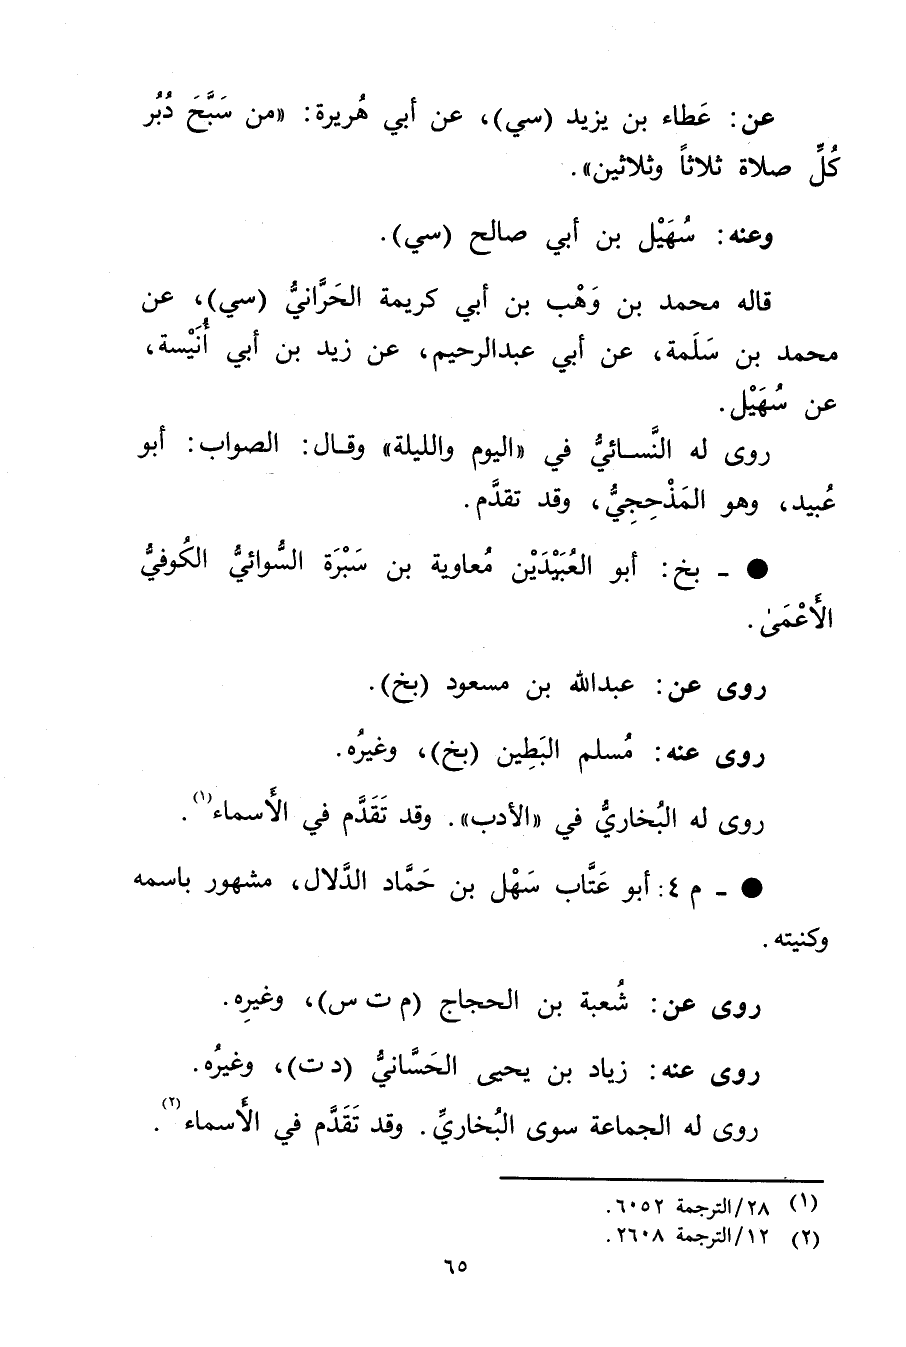 عن: عَطاء بن يزيد (سي)، عن أبي هُريرة: «من سَبَّحَ دُبُر
كُلِّ صلاة ثلاثاً وثلاثين».
وعنه: سُهَيْل بن أبي صالح (سي).
قاله محمد بن وَهْب بن أبي كريمة الحَرَّانيُّ (سي)، عن
محمد بن سَلَمة، عن أبي عبدالرحيم، عن زيد بن أبي أُنَيْسة،
عن سُهَيْل.
روى له النَّسـائيُّ في «اليوم والليلة» وقـال: الصواب: أبو
عُبيد، وهو المَذْحِجِيُّ، وقد تقدَّم.
● ـ بخ: أبو العُبَيْدَيْن مُعاوية بن سَبْرَة السُّوائيُّ الكُوفيُّ
الأَعْمَىٰ.
روى عن: عبدالله بن مسعود (بخ).
روى عنه: مُسلم البَطِين (بخ)، وغيرُه.
روى له البُخاريُّ في «الأدب». وقد تَقَدَّم في الأَسماء(١).
● ـ م ٤: أبو عَتَّاب سَهْل بن حَمَّاد الدَّلال، مشهور باسمه
وكنيته.
روى عن: شُعبة بن الحجاج (م ت س)، وغيرِه.
روى عنه: زياد بن يحيى الحَسَّانيُّ (د ت)، وغيرُه.
روى له الجماعة سوى البُخاريِّ. وقد تَقَدَّم في الأَسماء(٢).
(١) ٢٨/الترجمة ٦٠٥٢.
(٢) ١٢/الترجمة ٢٦٠٨.
٦٥